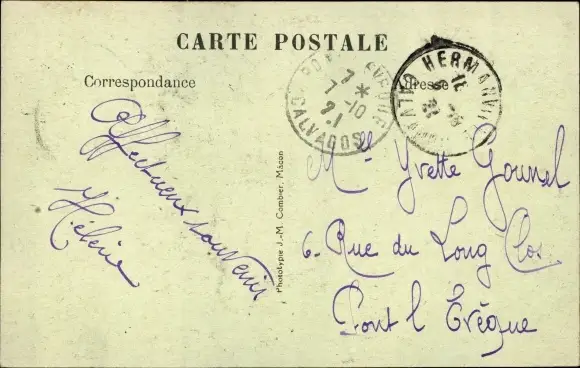 CARTE POSTALE
Correspondance
Adresse
PONT L'EVEQUE
7 *
7 -10
21
CALVADOS
HERMANVILLE
CALVADOS
Affectueux souvenir
Hélène
Phototypie J.-M. Combier, Mâcon
Mlle Yvette Gounel
6 Rue du Long Clos
Pont l Evêque